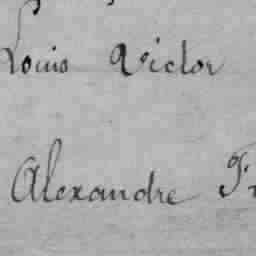 Louis Victor
Alexandre